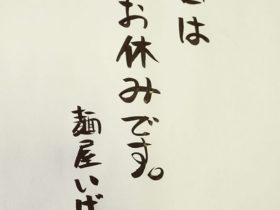 は
お休みです。
麺屋いげ